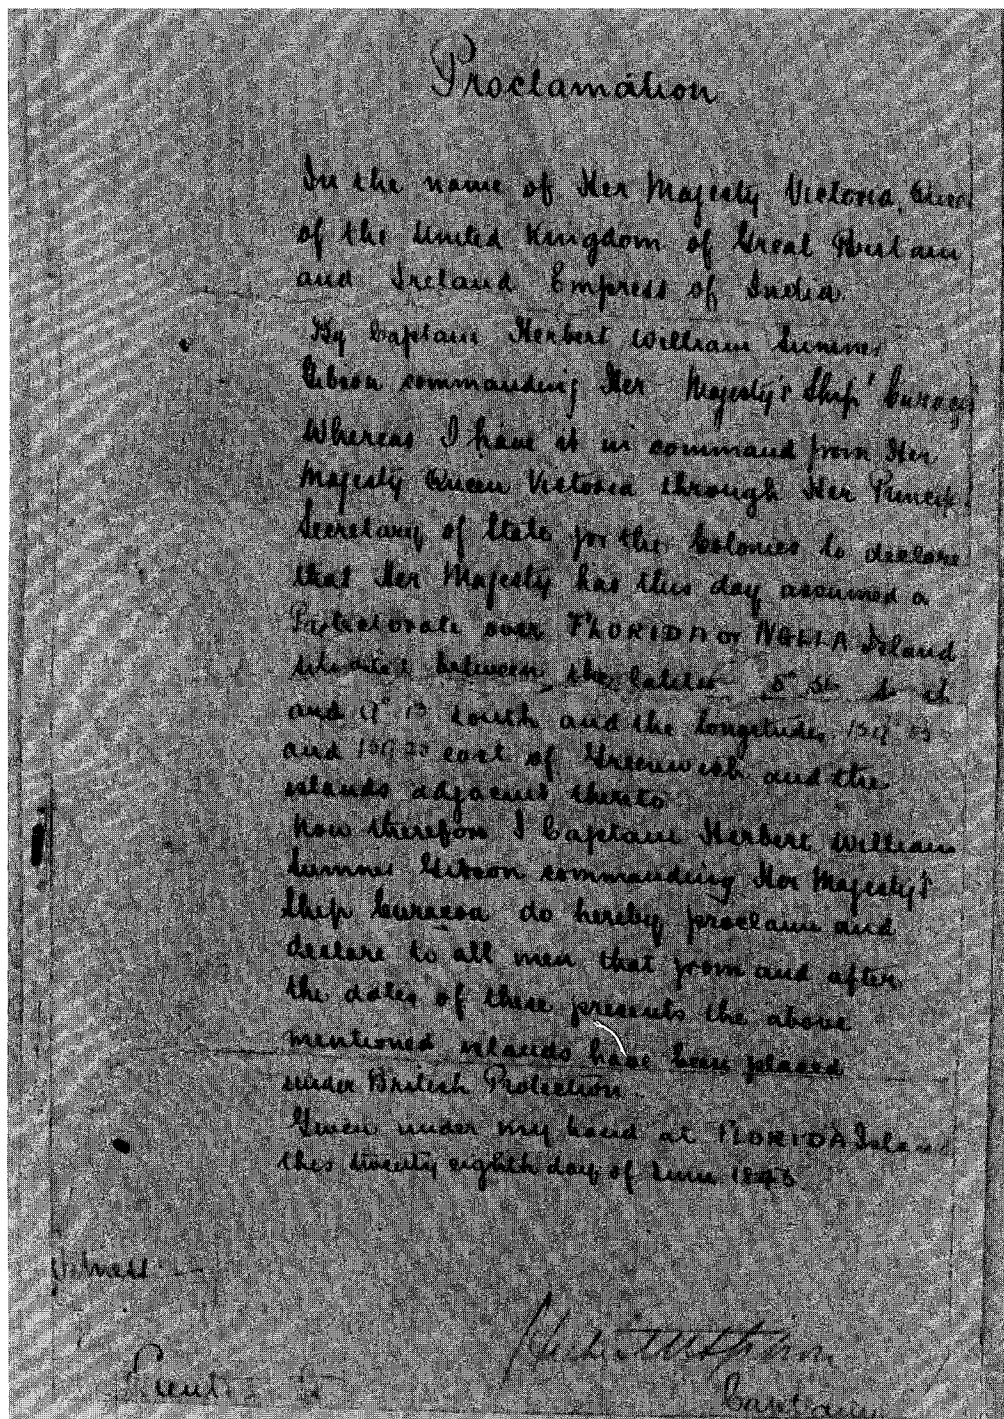 Proclamation
In the name of Her Majesty Victoria, Queen
of the United Kingdom of Great Britain
and Ireland Empress of India.
By Captain Herbert William Sumner
Gibson commanding Her Majesty's Ship 'Curacoa
Whereas I have it in command from Her
Majesty Queen Victoria through Her Princip
Secretary of State for the Colonies to declare
that Her Majesty has this day assumed a
Protectorate over FLORIDA or NGELA Island
situated between the
and South and the Longitudes
and East of Greenwich and the
islands adjacent thereto
Now therefore I Captain Herbert William
Sumner Gibson commanding Her Majesty's
Ship Curacoa do hereby proclaim and
declare to all men that from and after
the date of these presents the above
mentioned islands have been placed
under British Protection
Given under my hand at FLORIDA Island
this twenty eighth day of June 1893
Witness
Captain
Lieut